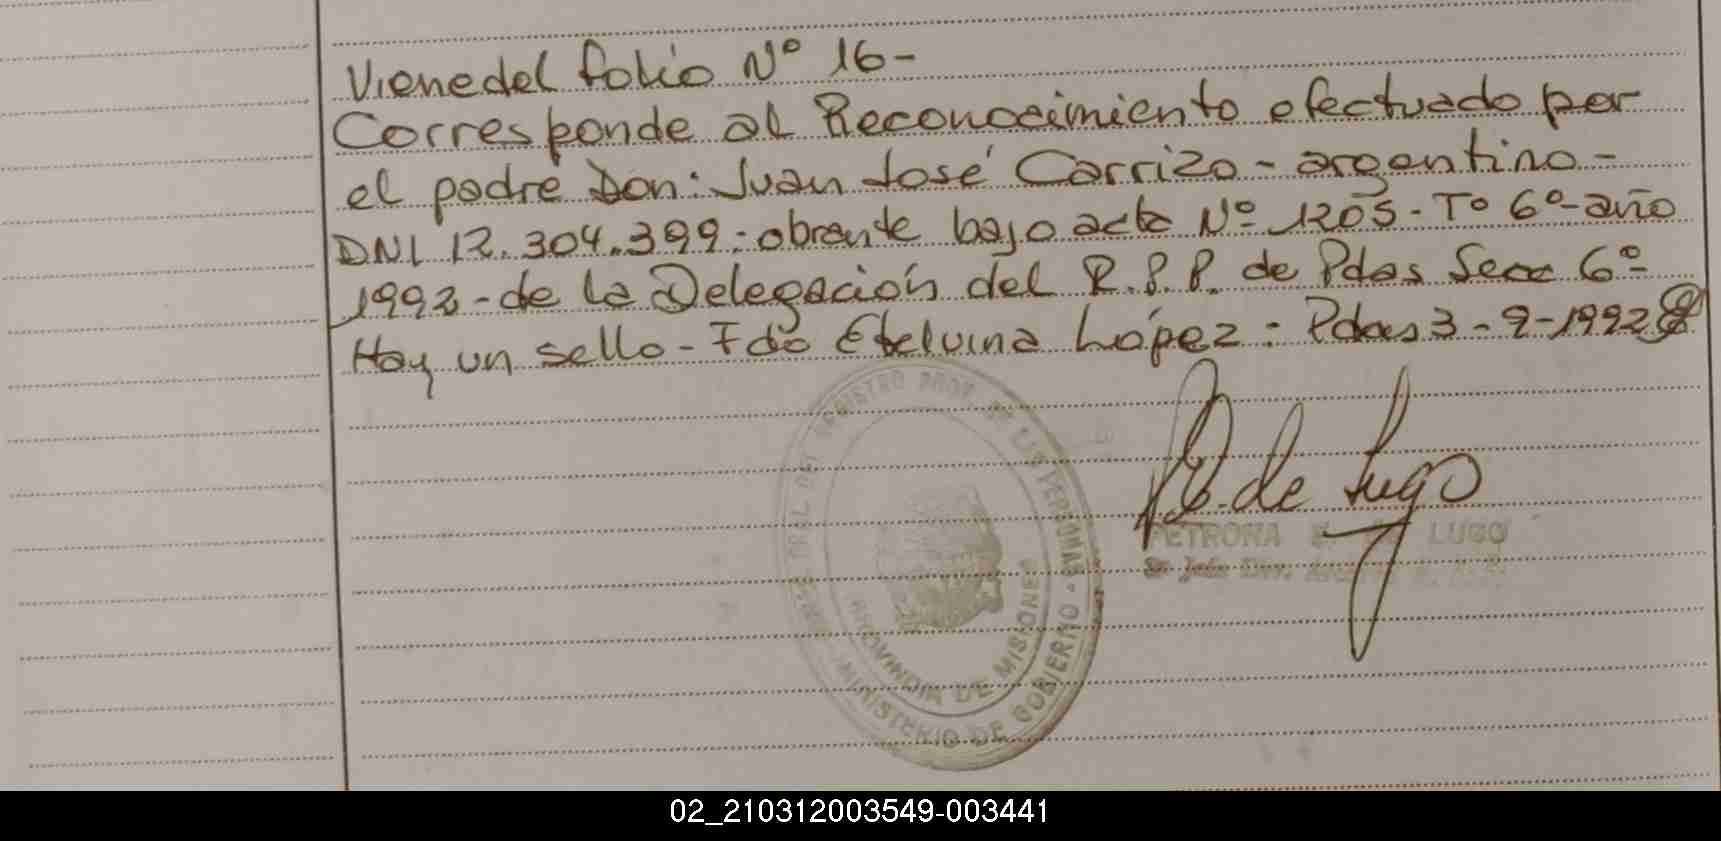 Viene del folio Nº 16-
Corresponde al Reconocimiento efectuado por
el padre Don: Juan José Carrizo - argentino -
DNI 12.304.399 - obrante bajo acta Nº 1205 - Tº 6º - año
1992 - de la Delegación del R.P.P. de Pdas Secc 6º -
Hay un sello - Fdo Etelvina López - Pdas 3 - 9 - 1992
REGISTRO PROV. DE LAS PERSONAS
MINISTERIO DE GOBIERNO
PROVINCIA DE MISIONES
de Lugo
PETRONA E. DE LUGO
02_210312003549-003441